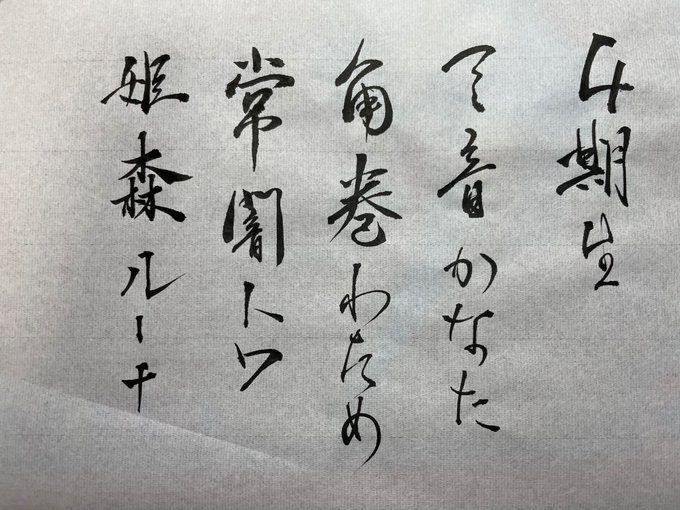 4期生
天音かなた
角巻わため
常闇トワ
姫森ルーナ